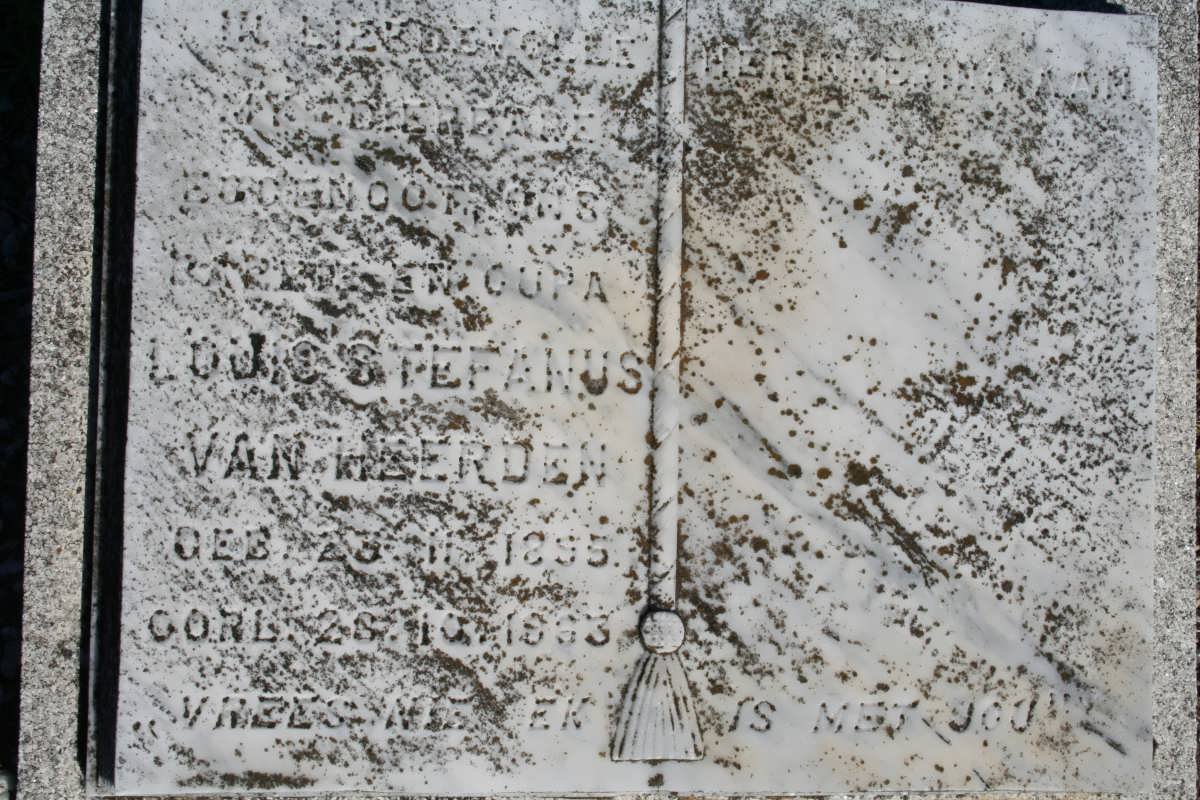 IN LIEFDEVOLLE HERINNERING AAN
MY DIERBARE
EGGENOOT, ONS
PAPPIE EN OUPA
LOUIS STEFANUS
VAN HEERDEN
GEB. 11.
OORL. 28.10.
„VREES NIE EK IS MET JOU"